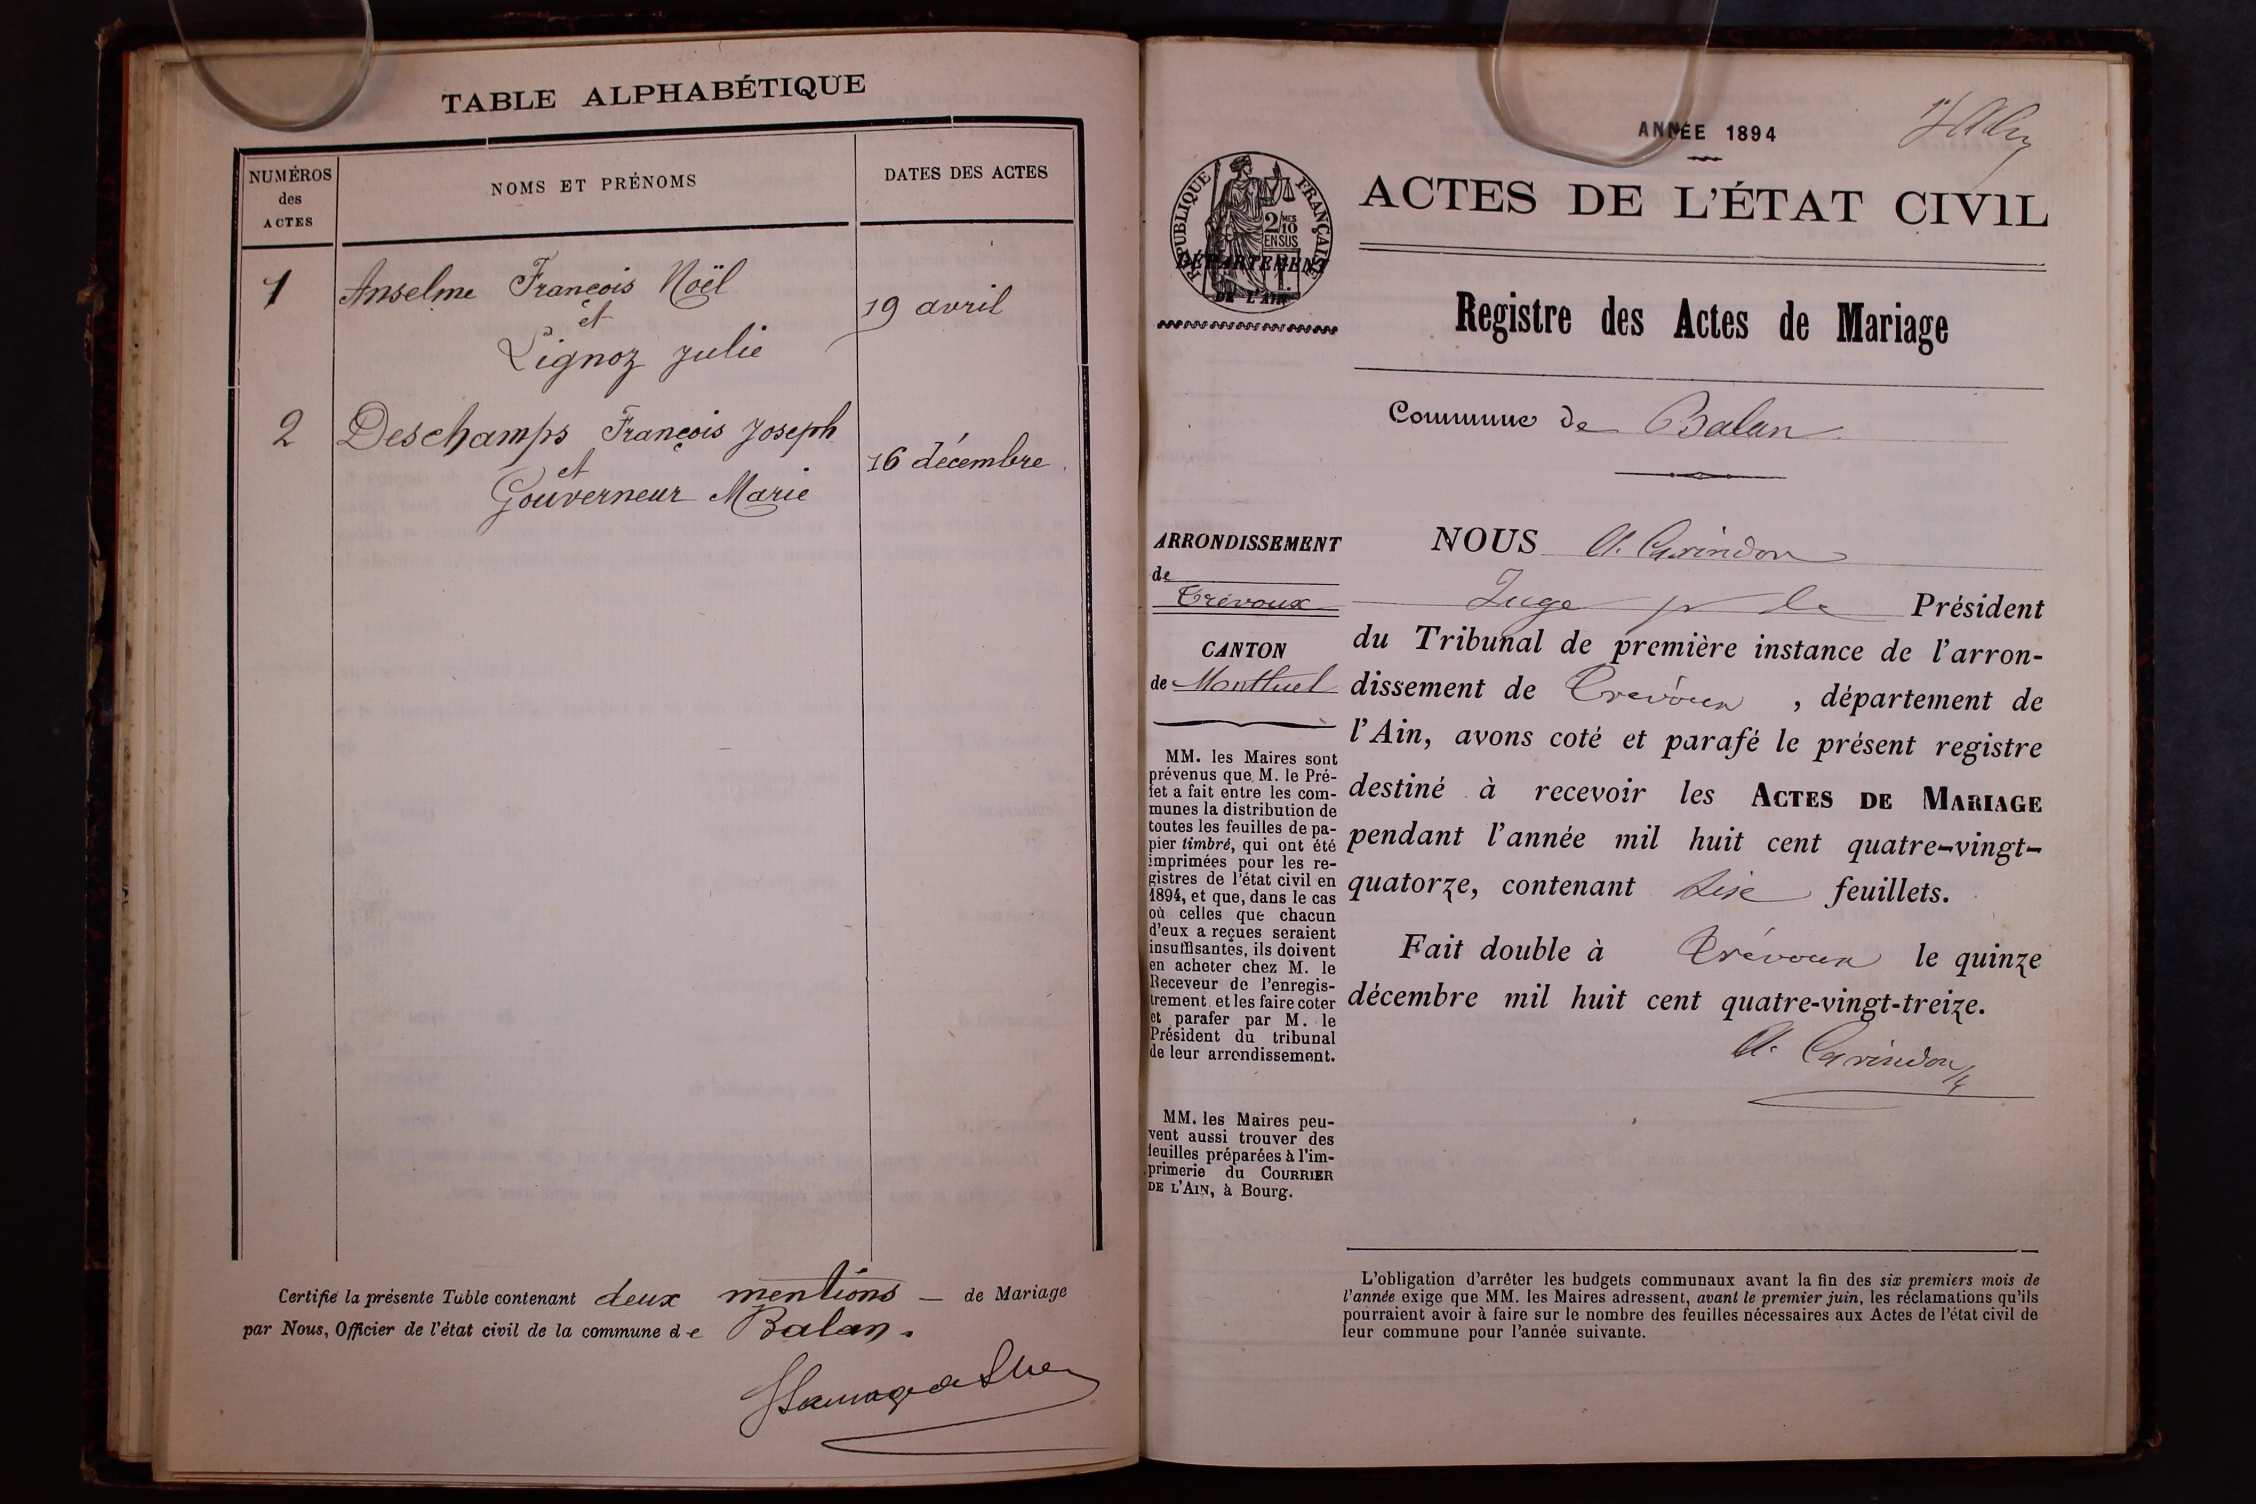 TABLE ALPHABÉTIQUE
NUMÉROS
des
ACTES
NOMS ET PRÉNOMS
DATES DES ACTES
1
Anselme François Noël
et
Lignoz Julie
19 avril
2
Deschamps François Joseph
et
Gouverneur Marie
16 décembre
Certifie la présente Table contenant deux mentions — de Mariage
par Nous, Officier de l'état civil de la commune de Balan.
ANNÉE 1894
ACTES DE L'ÉTAT CIVIL
RÉPUBLIQUE FRANÇAISE
2/10
MES
EN SUS
DÉPARTEMENT
DE L'AIN
Registre des Actes de Mariage
Commune de Balan
ARRONDISSEMENT
de
Trévoux
CANTON
de Montluel
MM. les Maires sont
prévenus que M. le Pré-
fet a fait entre les com-
munes la distribution de
toutes les feuilles de pa-
pier timbré, qui ont été
imprimées pour les re-
gistres de l'état civil en
1894, et que, dans le cas
où celles que chacun
d'eux a reçues seraient
insuffisantes, ils doivent
en acheter chez M. le
Receveur de l'enregis-
trement et les faire coter
et parafer par M. le
Président du tribunal
de leur arrondissement.
MM. les Maires peu-
vent aussi trouver des
feuilles préparées à l'im-
primerie du COURRIER
DE L'AIN, à Bourg.
NOUS
Juge pr le Président
du Tribunal de première instance de l'arron-
dissement de Trévoux, département de
l'Ain, avons coté et parafé le présent registre
destiné à recevoir les ACTES DE MARIAGE
pendant l'année mil huit cent quatre-vingt-
quatorze, contenant six feuillets.
Fait double à Trévoux le quinze
décembre mil huit cent quatre-vingt-treize.
L'obligation d'arrêter les budgets communaux avant la fin des six premiers mois de
l'année exige que MM. les Maires adressent, avant le premier juin, les réclamations qu'ils
pourraient avoir à faire sur le nombre des feuilles nécessaires aux Actes de l'état civil de
leur commune pour l'année suivante.